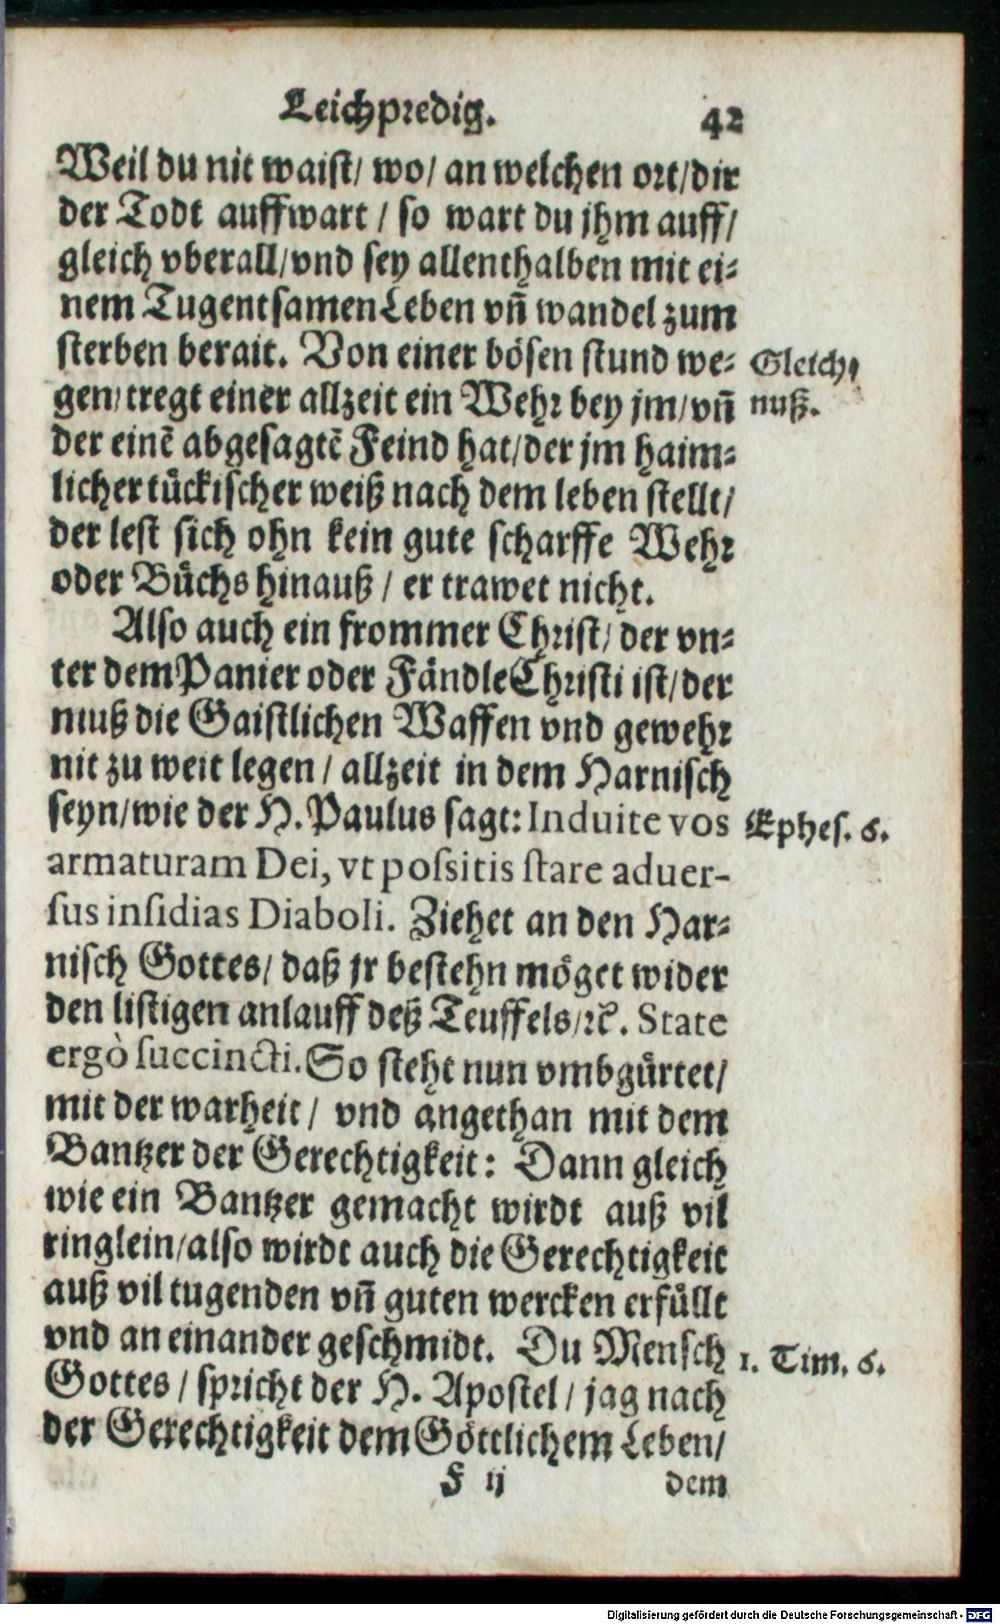 Leichpredig.
42
Weil du nit waist/ wo/ an welchen ort/dir
der Todt auffwart / so wart du jhm auff/
gleich vberall/vnd sey allenthalben mit ei⸗
nem Tugentsamen Leben vñ wandel zum
sterben berait. Von einer bösen stund we⸗
gen/tregt einer allzeit ein Wehr bey jm/vñ
der einẽ abgesagtẽ Feind hat/der jm haim⸗
licher tückischer weiß nach dem leben stellt/
der lest sich ohn kein gute scharffe Wehr
oder Büchs hinauß / er trawet nicht.
Gleich⸗
nuß.
Also auch ein frommer Christ/ der vn⸗
ter dem Panier oder Fändle Christi ist/der
muß die Gaistlichen Waffen vnd gewehr
nit zu weit legen / allzeit in dem Harnisch
seyn/wie der H. Paulus sagt: Induite vos
armaturam Dei, vt possitis stare aduer-
sus insidias Diaboli. Ziehet an den Har⸗
nisch Gottes/ daß jr bestehn möget wider
den listigen anlauff deß Teuffels/ꝛc. State
ergò succincti. So steht nun vmbgürtet/
mit der warheit / vnd angethan mit dem
Bantzer der Gerechtigkeit: Dann gleich
wie ein Bantzer gemacht wirdt auß vil
ringlein/also wirdt auch die Gerechtigkeit
auß vil tugenden vñ guten wercken erfüllt
vnd an einander geschmidt. Du Mensch
Gottes / spricht der H. Apostel / jag nach
der Gerechtigkeit dem Göttlichem Leben/
Ephes. 6.
1. Tim. 6.
F ij
dem
Digitalisierung gefördert durch die Deutsche Forschungsgemeinschaft - DFG